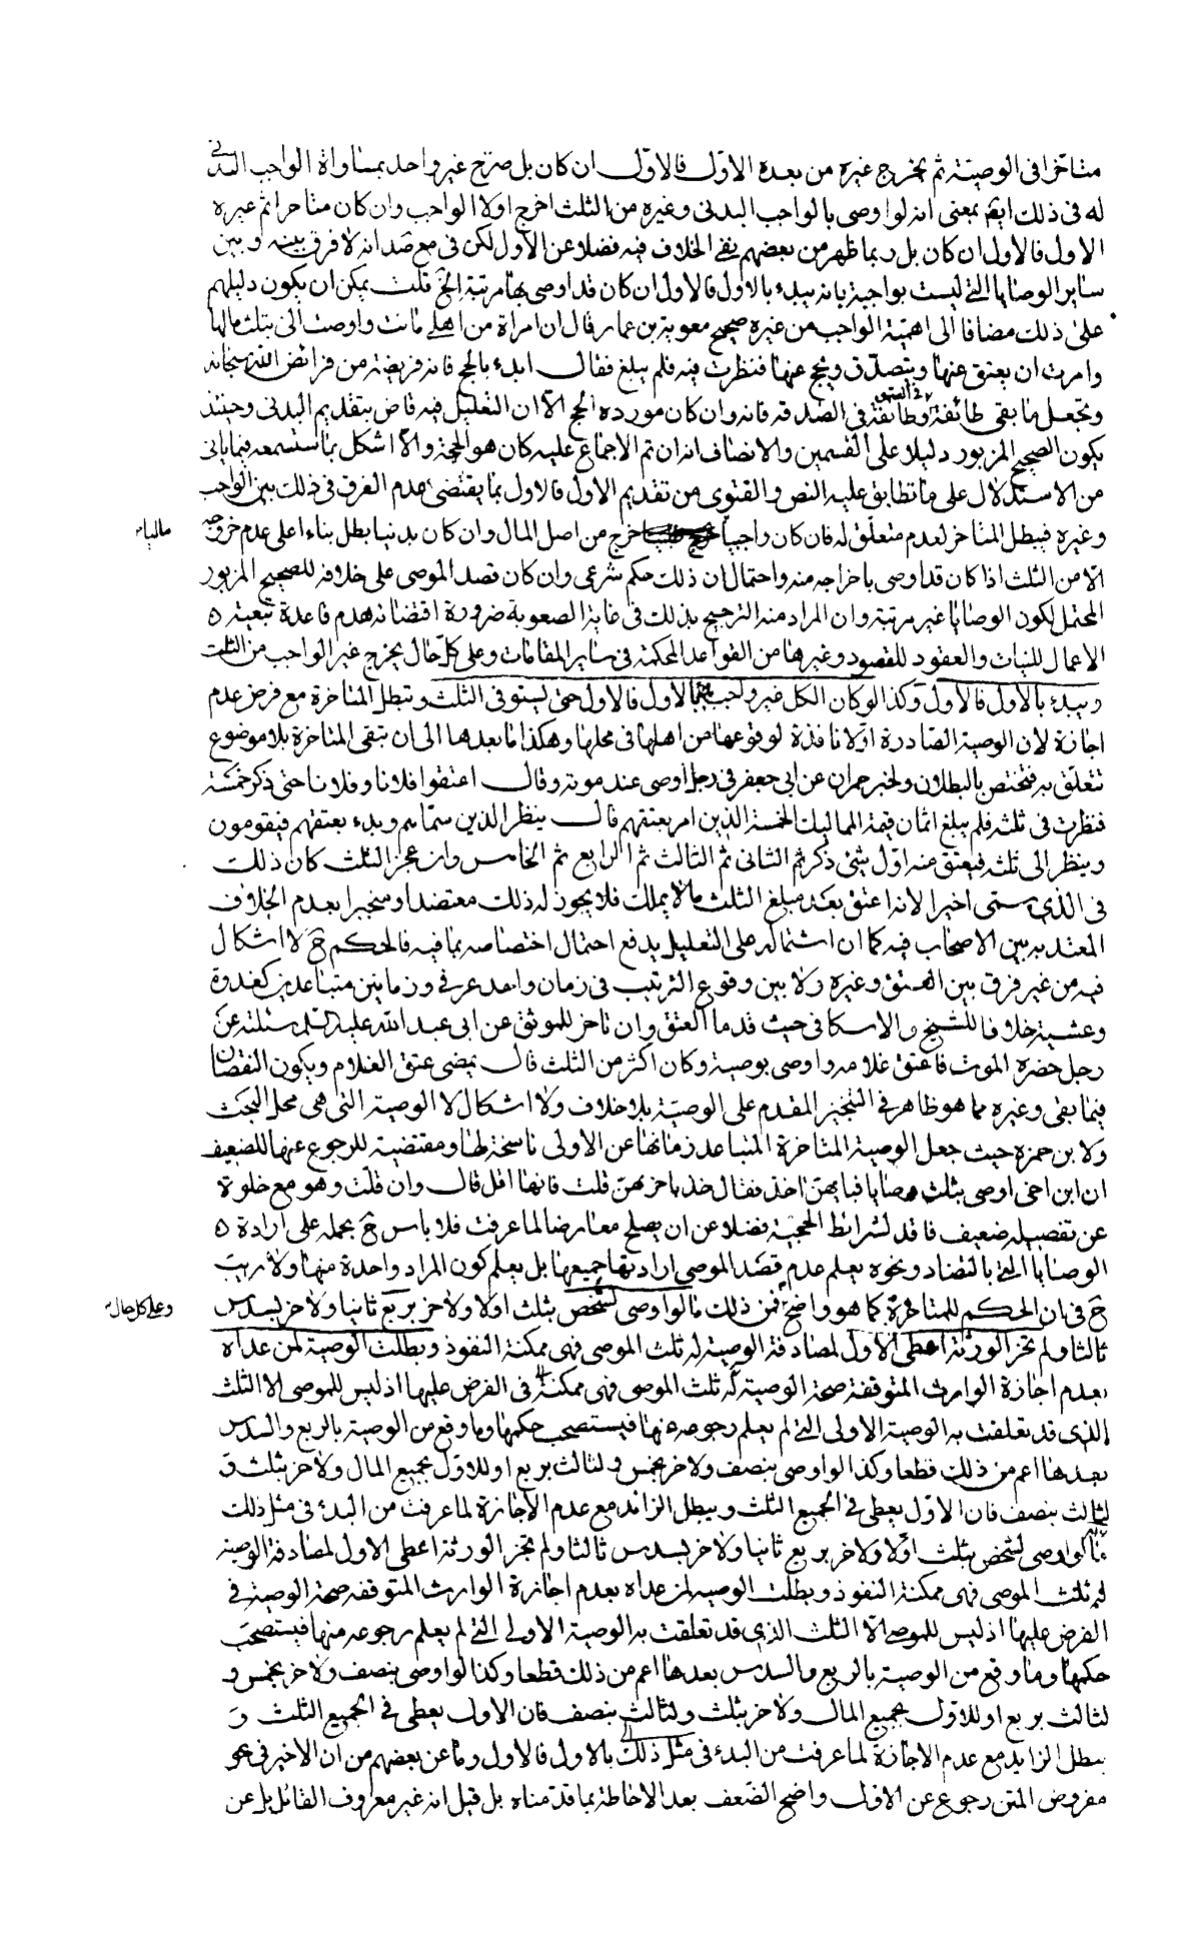 متاخرا فى الوصية ثم يخرج غيره من بعده الاول فالاول ان كان بل صرح غير واحد بمساواة الواجب البدنى
له فى ذلك ايضا بمعنى انه لو اوصى بالواجب البدنى وغيره من الثلث اخرج اولا الواجب وان كان متاخرا ثم غيره
الاول فالاول ان كان بل ربما ظهر من بعضهم نفى الخلاف فيه فضلا عن الاول لكن فى مع صد انه لا فرق بينه وبين
ساير الوصايا التى ليست بواجبة بانه يبدء بالاول فالاول ان كان قد اوصى بها مرتبة الخ قلت يمكن ان يكون دليلهم
على ذلك مضافا الى اهمية الواجب من غيره صحيح معوية بن عمار قال ان امراة من اهلى ماتت واوصت الى بثلث مالها
وامرت ان يعتق عنها ويتصدق ويحج عنها فنظرت فيه فلم يبلغ فقال ابدء بالحج فانه فريضة من فرائض الله سبحانه
وتجعل ما بقى طائفة فى العتق وطائفة فى الصدقة فانه وان كان مورده الحج الا ان التعليل فيه قاض بتقديم البدنى وحينئذ
يكون الصحيح المزبور دليلا على القسمين والانصاف انه ان تم الاجماع عليه كان هو الحجة والا اشكل بما ستسمعه فيما ياتى
من الاستدلال على ما تطابق عليه النص والفتوى من تقديم الاول فالاول بما يقتضى عدم الفرق فى ذلك بين الواجب
وغيره فيبطل المتاخر لعدم متعلق له فان كان واجبا خرج من اصل المال وان كان بدنيا بطل بناء اعلى عدم خروجه
ماليا
الا من الثلث اذا كان قد اوصى باخراجه منه واحتمال ان ذلك حكم شرعى وان كان قصد الموصى على خلافه للصحيح المزبور
المحتمل لكون الوصايا غير مرتبة وان المراد منه الترجيح بذلك فى غاية الصعوبة ضرورة اقتضائه هدم قاعدة تبعية
الاعمال للنيات والعقود للقصود وغيرها من القواعد المحكمة فى ساير المقامات وعلى كل حال يخرج غير الواجب من الثلث
ويبدء بالاول فالاول وكذا لو كان الكل غير واجب بالاول فالاول حتى يستوفى الثلث وتبطل المتاخرة مع فرض عدم
اجازة لان الوصية الصادرة اولا نافذة لوقوعها من اهلها فى محلها وهكذا ما بعدها الى ان تبقى المتاخرة بلا موضوع
تتعلق به فتختص بالبطلان ولخبر حمران عن ابى جعفر فى رجل اوصى عند موته وقال اعتقوا فلانا وفلانا حتى ذكر خمسة
فنظرت فى ثلثه فلم يبلغ اثمان قيمة المماليك الخمسة الذين امر بعتقهم قال ينظر الذين سماهم وبدء بعتقهم فيقومون
وينظر الى ثلثه فيعتق منه اول شئ ذكر ثم الثانى ثم الثالث ثم الرابع ثم الخامس وان عجز الثلث كان ذلك
فى الذى سمى اخيرا لانه اعتق بعد مبلغ الثلث ما لا يملك فلا يجوز له ذلك معتضدا ومنجبرا بعدم الخلاف
المعتد به بين الاصحاب فيه كما ان اشتماله على التعليل يدفع احتمال اختصاصه بما فيه فالحكم ح لا اشكال
فيه من غير فرق بين العتق وغيره ولا بين وقوع الترتيب فى زمان واحد عرفى وزمانين متباعدين كغدوة
وعشية خلافا للشيخ والاسكافى حيث قدما العتق وان تاخر للموثق عن ابى عبد الله عليه السلام سئلته عن
رجل حضره الموت فاعتق غلامه واوصى بوصية وكان اكثر من الثلث قال يمضى عتق الغلام ويكون النقصان
فيما بقى وغيره مما هو ظاهر فى التنجيز المقدم على الوصية بلا خلاف ولا اشكال لا الوصية التى هى محل البحث
ولابن حمزة حيث جعل الوصية المتاخرة المتباعد زمانها عن الاولى ناسخة لها ومقتضية للرجوع عنها للضعيف
ان ابن اخى اوصى بثلث وصايا فبايهن اخذ فقال خذ باخرهن قلت فانها اقل قال وان قلت وهو مع خلوه
عن تفصيله ضعيف فاقد لشرائط الحجية فضلا عن ان يصلح معارضا لما عرفت فلا باس ح بحمله على ارادة
الوصايا التى بالتضاد ونحوه يعلم عدم قصد الموصى ارادتها جميعها بل يعلم كون المراد واحدة منها ولا ريب
ح فى ان الحكم للمتاخرة كما هو واضح فمن ذلك ما لو اوصى لشخص بثلث اولا ولاخر بربع ثانيا ولاخر بسدس
وعلى كل حال
ثالثا ولم تجز الورثة اعطى الاول لمصادفة الوصية له ثلث الموصى فهى ممكنة النفوذ وبطلت الوصية لمن عداه
بعدم اجازة الوارث المتوقفة صحة الوصية له ثلث الموصى فهى ممكنة فى الفرض عليها اذ ليس للموصى الا الثلث
الذى قد تعلقت به الوصية الاولى التى لم يعلم رجوعه عنها فيستصحب حكمها وما وقع من الوصية بالربع والسدس
بعدها اعم من ذلك قطعا وكذا لو اوصى بنصف ولاخر بخمس ولثالث بربع او للاول بجميع المال ولاخر بثلث و
لثالث بنصف فان الاول يعطى فى الجميع الثلث ويبطل الزائد مع عدم الاجازة لما عرفت من البدء فى مثل ذلك
ما لو اوصى لشخص بثلث اولا ولاخر بربع ثانيا ولاخر بسدس ثالثا ولم تجز الورثة اعطى الاول لمصادفة الوصية
له ثلث الموصى فهى ممكنة النفوذ وبطلت الوصية لمن عداه بعدم اجازة الوارث المتوقفه صحة الوصية فى
الفرض عليها اذ ليس للموصى الا الثلث الذى قد تعلقت به الوصية الاولى التى لم يعلم رجوعه منها فيستصحب
حكمها وما وقع من الوصية بالربع والسدس بعدها اعم من ذلك قطعا وكذا لو اوصى بنصف ولاخر بخمس و
لثالث بربع او للاول بجميع المال ولاخر بثلث ولثالث بنصف فان الاول يعطى فى الجميع الثلث و
يبطل الزايد مع عدم الاجازة لما عرفت من البدء فى مثل ذلك بالاول فالاول وما عن بعضهم من ان الاخير فى نحو
مفروض المتن رجوع عن الاول واضح الضعف بعد الاحاطة بما قدمناه بل قيل انه غير معروف القائل بل عن